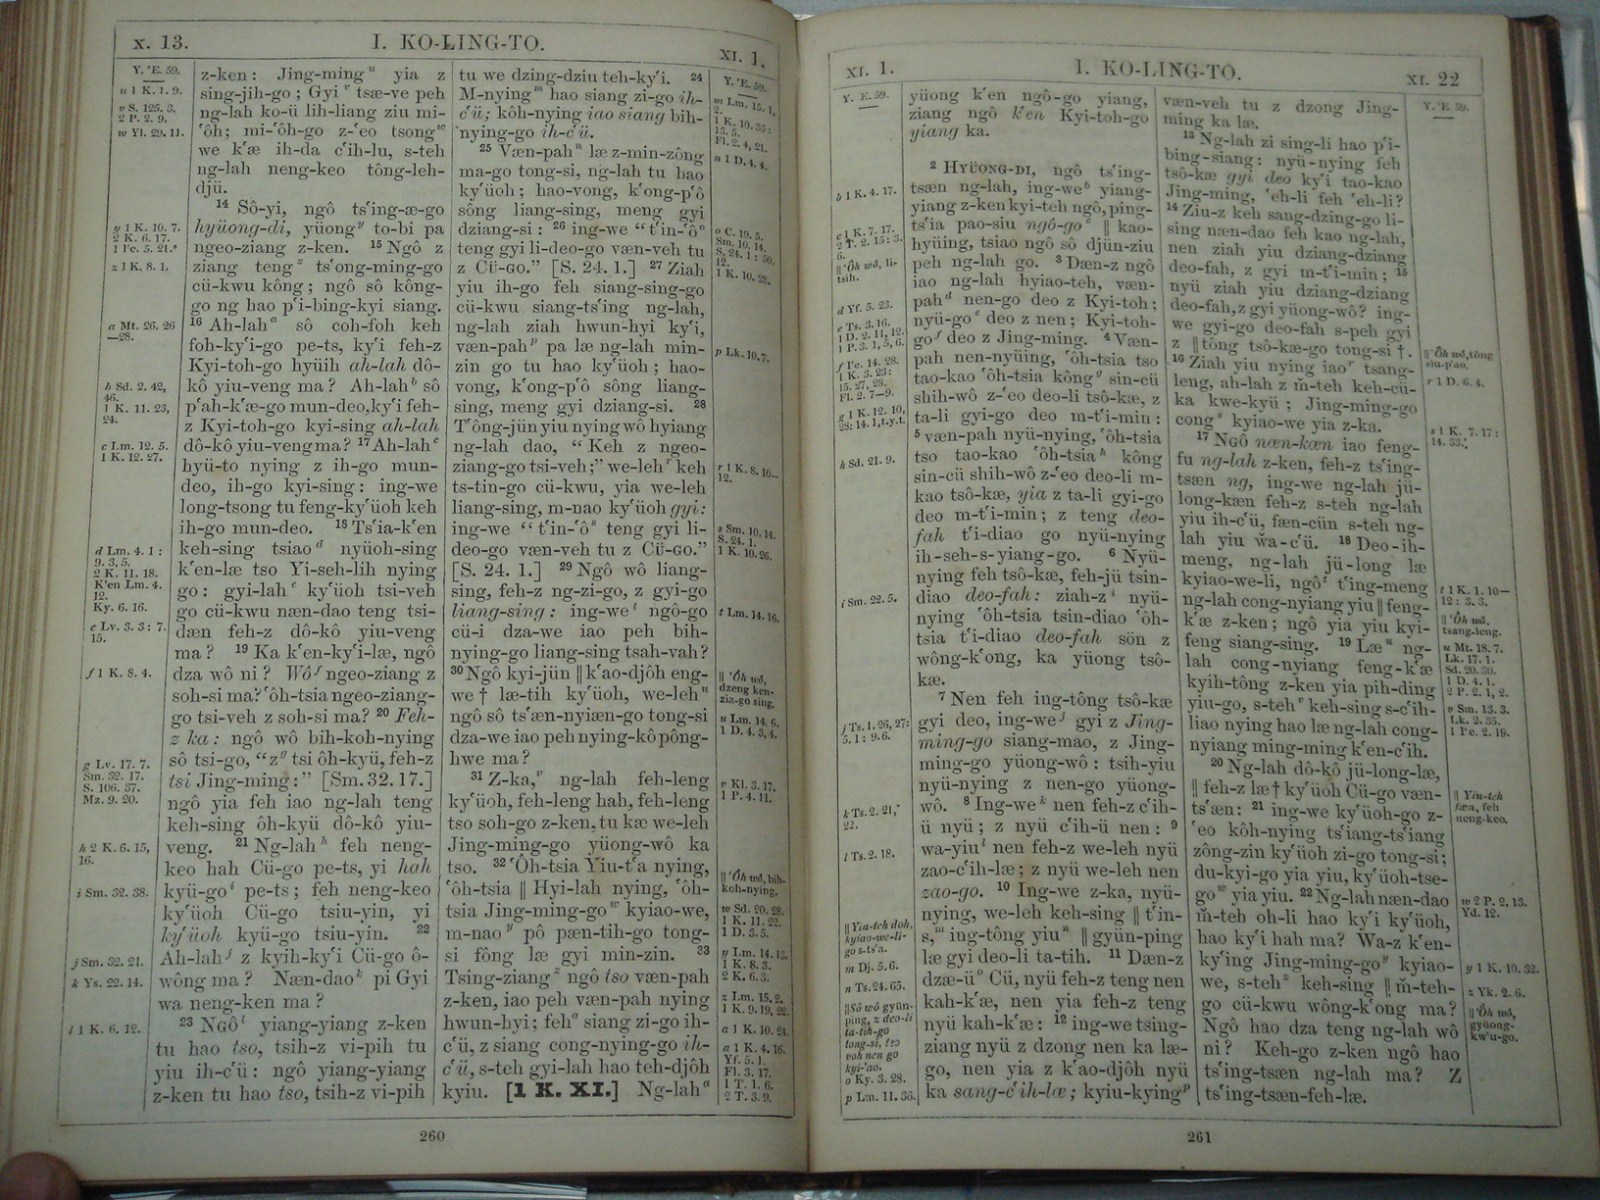 X. 13.
I. KO-LING-TO.
XI. 1.
Y. 'E. 59.
u 1 K. 1. 9.
v S. 125. 3.
2 P. 2. 9.
w Yl. 29. 11.
y 1 K. 10. 7.
2 K. 6. 17.
z 1 K. 8. 1.
a Mt. 26. 26
—28.
b Sd. 2. 42,
46.
1 K. 11. 23,
24.
c Lm. 12. 5.
1 K. 12. 27.
d Lm. 4. 1 :
9. 3, 5.
2 K. 11. 18.
K'en Lm. 4.
12.
Ky. 6. 16.
e Lv. 3. 3 : 7.
15.
f 1 K. 8. 4.
g Lv. 17. 7.
Sm. 32. 17.
S. 106. 37.
Mz. 9. 20.
h 2 K. 6. 15,
16.
i Sm. 32. 38.
j Sm. 32. 21.
k Ys. 22. 14.
l 1 K. 6. 12.
z-ken : Jing-ming u yia z
sing-jih-go ; Gyi v tsæ-ve peh
ng-lah ko-ü lih-liang ziu mi-
'ôh; mi-'ôh-go z-'eo tsong w
we k'æ ih-da c'ih-lu, s-teh
ng-lah neng-keo tông-leh-
djü.
14 Sô-yi, ngô ts'ing-æ-go
hyüong-di, yüong y to-bi pa
ngeo-ziang z-ken. 15 Ngô z
ziang teng z ts'ong-ming-go
cü-kwu kông ; ngô sô kông-
go ng hao p'i-bing-kyi siang.
16 Ah-lah a sô coh-foh keh
foh-ky'i-go pe-ts, ky'i feh-z
Kyi-toh-go hyüih ah-lah dô-
kô yiu-veng ma ? Ah-lah b sô
p'ah-k'æ-go mun-deo, ky'i feh-
z Kyi-toh-go kyi-sing ah-lah
dô-kô yiu-veng ma ? 17 Ah-lah c
hyü-to nying z ih-go mun-
deo, ih-go kyi-sing : ing-we
long-tsong tu feng-ky'üoh keh
ih-go mun-deo. 18 Ts'ia-k'en
keh-sing tsiao d nyüoh-sing
k'en-læ tso Yi-seh-lih nying
go : gyi-lah e ky'üoh tsi-veh
go cü-kwu næn-dao teng tsi-
dæn feh-z dô-kô yiu-veng
ma ? 19 Ka k'en-ky'i-læ, ngô
dza wô ni ? Wô f ngeo-ziang z
soh-si ma? 'ôh-tsia ngeo-ziang-
go tsi-veh z soh-si ma ? 20 Feh-
z ka : ngô wô bih-koh-nying
sô tsi-go, “z g tsi ôh-kyü, feh-z
tsi Jing-ming :” [Sm. 32. 17.]
ngô yia feh iao ng-lah teng
keh-sing ôh-kyü dô-kô yiu-
veng. 21 Ng-lah h feh neng-
keo hah Cü-go pe-ts, yi hah
kyü-go i pe-ts ; feh neng-keo
ky'üoh Cü-go tsiu-yin, yi
ky'üoh kyü-go tsiu-yin. 22
Ah-lah j z kyih-ky'i Cü-go ô-
wông ma ? Næn-dao k pi Gyi
wa neng-ken ma ?
23 NGÔ l yiang-yiang z-ken
tu hao tso, tsih-z vi-pih tu
yiu ih-c'ü : ngô yiang-yiang
z-ken tu hao tso, tsih-z vi-pih
tu we dzing-dziu teh-ky'i. 24
M-nying m hao siang zi-go ih-
c'ü ; kôh-nying iao siang bih-
nying-go ih-c'ü.
25 Væn-pah n læ z-min-zông
ma-go tong-si, ng-lah tu hao
ky'üoh ; hao-vong, k'ong-p'ô
sông liang-sing, meng gyi
dziang-si : 26 ing-we “t'in-'ô o
teng gyi li-deo-go væn-veh tu
z CÜ-GO.” [S. 24. 1.] 27 Ziah
yiu ih-go feh siang-sing-go
cü-kwu siang-ts'ing ng-lah,
ng-lah ziah hwun-hyi ky'i,
væn-pah p pa læ ng-lah min-
zin go tu hao ky'üoh ; hao-
vong, k'ong-p'ô sông liang-
sing, meng gyi dziang-si. 28
T'ông-jün yiu nying wô hyiang
ng-lah dao, “Keh z ngeo-
ziang-go tsi-veh ;” we-leh r keh
ts-tin-go cü-kwu, yia we-leh
liang-sing, m-nao ky'üoh gyi :
ing-we “t'in-'ô s teng gyi li-
deo-go væn-veh tu z CÜ-GO.”
[S. 24. 1.] 29 Ngô wô liang-
sing, feh-z ng-zi-go, z gyi-go
liang-sing : ing-we t ngô-go
cü-i dza-we iao peh bih-
nying-go liang-sing tsah-vah ?
30 Ngô kyi-jün ‖ k'ao-djôh eng-
we † læ-tih ky'üoh, we-leh u
ngô sô ts'æn-nyiæn-go tong-si
dza-we iao peh nying-kô pông-
hwe ma ?
31 Z-ka, v ng-lah feh-leng
ky'üoh, feh-leng hah, feh-leng
tso soh-go z-ken, tu kæ we-leh
Jing-ming-go yüong-wô ka
tso. 32 'Ôh-tsia Yiu-t'a nying,
'ôh-tsia ‖ Hyi-lah nying, 'ôh-
tsia Jing-ming-go w kyiao-we,
m-nao y pô pæn-tih-go tong-
si fông læ gyi min-zin. 33
Tsing-ziang z ngô tso væn-pah
z-ken, iao peh væn-pah nying
hwun-hyi ; feh a siang zi-go ih-
c'ü, z siang cong-nying-go ih-
c'ü, s-teh gyi-lah hao teh-djôh
kyiu. [1 K. XI.] Ng-lah a
Y. 'E. 59.
m Lm. 15. 1,
2.
1 K. 10. 33 :
13. 5.
Fl. 2. 4, 21.
n 1 D. 4. 4.
o C. 19. 5.
Sm. 10. 14.
S. 24. 1 : 50.
12.
1 K. 10. 28.
p Lk. 10. 7.
r 1 K. 8. 10—
12.
s Sm. 10. 14.
S. 24. 1.
1 K. 10. 26.
t Lm. 14. 16.
‖ 'Ôh wô,
dzeng ken-
zia-go sing.
u Lm. 14. 6.
1 D. 4. 3, 4.
v Kl. 3. 17.
1 P. 4. 11.
‖ 'Ôh wô, bih-
koh-nying.
w Sd. 20. 28.
1 K. 11. 22.
1 D. 3. 5.
y Lm. 14. 13.
1 K. 8. 3.
2 K. 6. 3.
z Lm. 15. 2.
1 K. 9. 19, 22.
a 1 K. 10. 24.
a 1 K. 4. 16.
Yf. 5. 1.
Fl. 3. 17.
1 T. 1. 6.
2 T. 3. 9.
260
XI. 1.
I. KO-LING-TO.
XI. 22
Y. 'E. 59.
b 1 K. 4. 17.
c 1 K. 7. 17.
2 T. 2. 15 : 3.
6.
‖ 'Ôh wô, li-
tsih.
d Yf. 5. 23.
e Ts. 3. 16.
1 D. 2. 11, 12.
1 P. 3. 1, 5, 6.
1 K. 3. 23 :
15. 27, 28.
Fl. 2. 7—9.
g 1 K. 12. 10,
28 : 14. 1, t.y.t.
h Sd. 21. 9.
i Sm. 22. 5.
j Ts. 1. 26, 27:
5. 1 : 9. 6.
k Ts. 2. 21,
22.
l Ts. 2. 18.
‖ Yiu-teh doh,
kyiao-we-li-
go s-ts'a.
m Dj. 5. 6.
n Ts. 24. 65.
‖ Sô wô gyün-
ping, z deo-li
ta-tih-go
tong-si, tso
voh nen go
kyi-'ao.
o Ky. 3. 28.
p Lm. 11. 36.
yüong k'en ngô-go yiang,
ziang ngô k'en Kyi-toh-go
yiang ka.
2 HYÜONG-DI, ngô ts'ing-
tsæn ng-lah, ing-we b yiang-
yiang z-ken kyi-teh ngô, ping-
ts'ia pao-siu ngô-go c ‖ kao-
hyüing, tsiao ngô sô djün-ziu
peh ng-lah go. 3 Dæn-z ngô
iao ng-lah hyiao-teh, væn-
pah d nen-go deo z Kyi-toh ;
nyü-go e deo z nen ; Kyi-toh-
go f deo z Jing-ming. 4 Væn-
pah nen-nyüing, 'ôh-tsia tso
tao-kao 'ôh-tsia kông g sin-cü
shih-wô z-'eo deo-li tsô-kæ, z
ta-li gyi-go deo m-t'i-min :
5 væn-pah nyü-nying, 'ôh-tsia
tso tao-kao 'ôh-tsia h kông
sin-cü shih-wô z-'eo deo-li m-
kao tsô-kæ, yia z ta-li gyi-go
deo m-t'i-min ; z teng deo-
fah t'i-diao go nyü-nying
ih-seh-s-yiang-go. 6 Nyü-
nying feh tsô-kæ, feh-jü tsin-
diao deo-fah : ziah-z i nyü-
nying 'ôh-tsia tsin-diao 'ôh-
tsia t'i-diao deo-fah sön z
wông-k'ong, ka yüong tsô-
kæ.
7 Nen feh ing-tông tsô-kæ
gyi deo, ing-we j gyi z Jing-
ming-go siang-mao, z Jing-
ming-go yüong-wô : tsih-yiu
nyü-nying z nen-go yüong-
wô. 8 Ing-we k nen feh-z c'ih-
ü nyü ; z nyü c'ih-ü nen : 9
wa-yiu l nen feh-z we-leh nyü
zao-c'ih-læ ; z nyü we-leh nen
zao-go. 10 Ing-we z-ka, nyü-
nying, we-leh keh-sing ‖ t'in-
s, m ing-tông yiu n ‖ gyün-ping
læ gyi deo-li ta-tih. 11 Dæn-z
dzæ-ü o Cü, nyü feh-z teng nen
kah-k'æ, nen yia feh-z teng
nyü kah-k'æ : 12 ing-we tsing-
ziang nyü z dzong nen ka læ-
go, nen yia z k'ao-djôh nyü
ka sang-c'ih-læ ; kyiu-kying p
væn-veh tu z dzong Jing-
ming ka læ.
13 Ng-lah zi sing-li hao p'i-
bing-siang : nyü-nying feh
tsô-kæ gyi deo ky'i tao-kao
Jing-ming, 'eh-li feh 'eh-li?
14 Ziu-z keh sang-dzing-go li-
sing næn-dao feh kao ng-lah,
nen ziah yiu dziang-dziang
deo-fah, z gyi m-t'i-min ; 15
nyü ziah yiu dziang-dziang
deo-fah, z gyi yüong-wô? ing-
we gyi-go deo-fah s-peh gyi
z ‖ tông tsô-kæ-go tong-si †.
16 Ziah yiu nying iao r tsang-
leng, ah-lah z m̄-teh keh-cü-
ka kwe-kyü ; Jing-ming-go
cong s kyiao-we yia z-ka.
17 NGÔ næn-kæn iao feng-
fu ng-lah z-ken, feh-z ts'ing-
tsæn ng, ing-we ng-lah jü-
long-kæn feh-z s-teh ng-lah
yiu ih-c'ü, fæn-cün s-teh ng-
lah yiu wa-c'ü. 18 Deo-ih-
meng, ng-lah jü-long læ
kyiao-we-li, ngô t t'ing-meng
ng-lah cong-nyiang yiu ‖ feng-
k'æ z-ken ; ngô yia yiu kyi-
feng siang-sing. 19 Læ u ng-
lah cong-nyiang feng-k'æ
kyih-tông z-ken yia pih-ding
yiu-go, s-teh v keh-sing s-c'ih-
liao nying hao læ ng-lah cong-
nyiang ming-ming k'en-c'ih.
20 Ng-lah dô-kô jü-long-læ,
‖ feh-z læ † ky'üoh Cü-go væn-
ts'æn : 21 ing-we ky'üoh-go z-
'eo kôh-nying ts'iang-ts'iang
zông-zin ky'üoh zi-go tong-si ;
du-kyi-go yia yiu, ky'üoh-tse-
go w yia yiu. 22 Ng-lah næn-dao
m̄-teh oh-li hao ky'i ky'üoh,
hao ky'i hah ma? Wa-z k'en-
ky'ing Jing-ming-go y kyiao-
we, s-teh z keh-sing ‖ m-teh-
go cü-kwu wông-k'ong ma ?
Ngô hao dza teng ng-lah wô
ni ? Keh-go z-ken ngô hao
ts'ing-tsæn ng-lah ma ? Z
ts'ing-tsæn-feh-læ.
Y. 'E. 59.
‖ 'Ôh wô, tông
siu-p'ao.
r 1 D. 6. 4.
s 1 K. 7. 17 :
14. 33.
t 1 K. 1. 10—
12 : 3. 3.
‖ 'Ôh wô,
tsang-leng.
u Mt. 18. 7.
Lk. 17. 1.
Sd. 20. 30.
1 D. 4. 1.
2 P. 2. 1, 2.
v Sm. 13. 3.
Lk. 2. 35.
‖ Yiu-teh
læn, feh
neng-keo.
w 2 P. 2. 13.
Yd. 12.
y 1 K. 10. 32.
z Yk. 2. 6.
‖ 'Ôh wô,
gyüong-
kw'u-go.
261